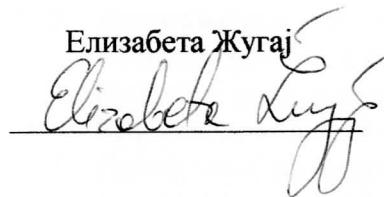 Елизабета Жугај
Elizabeta